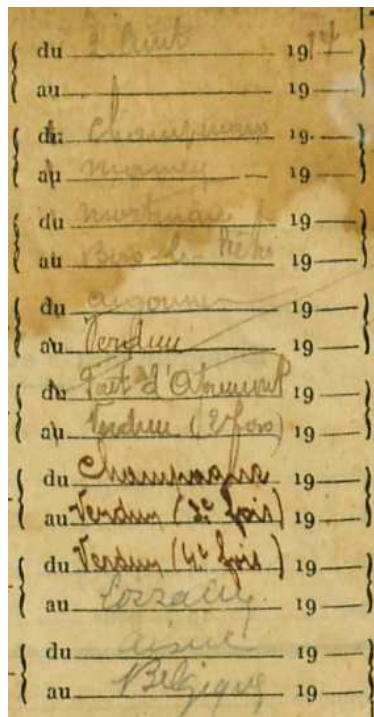 du 2 Août 1914
au 19
du Champenoux 19
au 19
du 19
au Bois-le-Prêtre 19
du Argonne 19
au Verdun 19
du Fort d'Apremont 19
au Verdun (2e fois) 19
du Champagne 19
au Verdun (3e fois) 19
du Verdun (4e fois) 19
au Lorraine 19
du Aisne 19
au Belgique 19